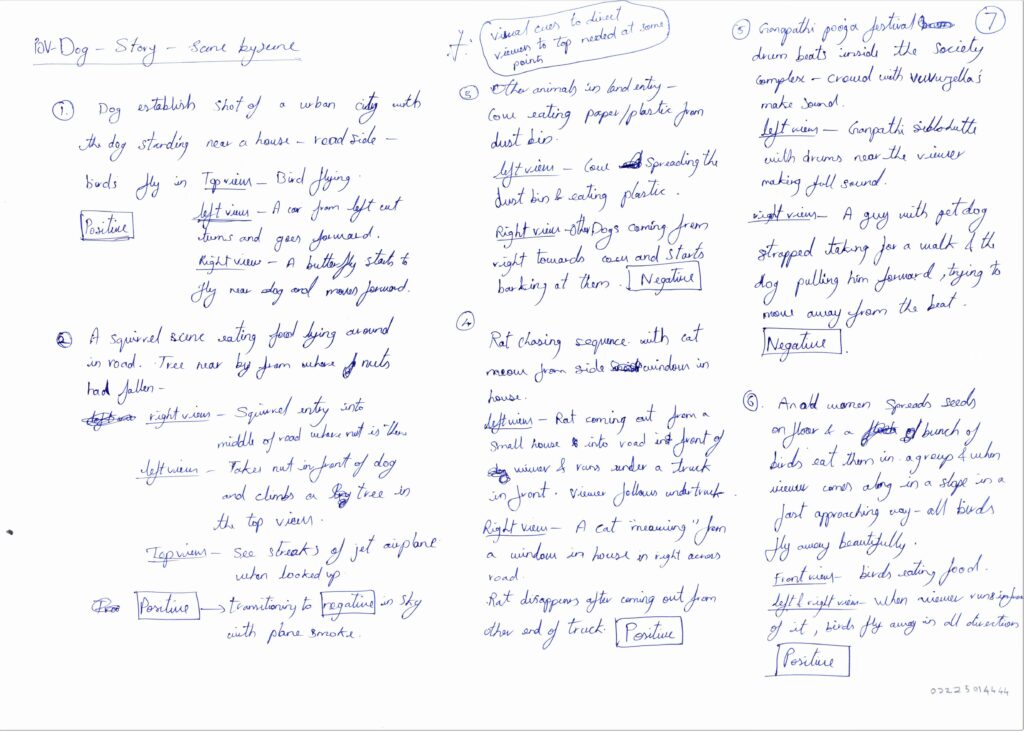 POV-Dog - Story - Scene by scene
7
* Visual cues to direct
viewers to top needed at some
points
① Dog establish shot of a urban city with
the dog standing near a house - road side -
birds fly in Top view - Bird flying.
Positive
left view - A car from left cut
turns and goes forward.
Right view - A butterfly starts to
fly near dog and moves forward.
② A squirrel scene eating food lying around
in road. Tree near by from where nuts
had fallen -
right view - Squirrel entry into
middle of road where nut is there
left view - Takes nut in front of dog
and climbs a tree in
the top view.
Top view - See streaks of jet airplane
when looked up
Positive → transitioning to negative in sky
with plane smoke.
③ Other animals in land entry -
Cow eating paper/plastic from
dust bin.
left view - Cow Spreading the
dust bin & eating plastic.
Right view - Other Dogs coming from
right towards cow and starts
barking at them. Negative
④
Rat chasing sequence with cat
meow from side window in
house.
Left view - Rat coming out from a
small house into road in front of
viewer & runs under a truck
in front. Viewer follows under truck.
Right view - A cat "meawing" from
a window in house in right across
road.
Rat disappears after coming out from
other end of truck. Positive
⑤ Ganpathi pooja festival
drum beats inside the society
complex - crowd with vuvuzella's
make sound.
left view - Ganpathi
with drums near the viewer
making full sound.
right view - A guy with pet dog
strapped taking for a walk & the
dog pulling him forward, trying to
move away from the beat.
Negative.
⑥. An old women spreads seeds
on floor & a bunch of
birds eat them in a group & when
viewer comes along in a slope in a
fast approaching way - all birds
fly away beautifully.
Front view - birds eating food.
Left & right view - when viewer runs in front
of it, birds fly away in all direction
Positive